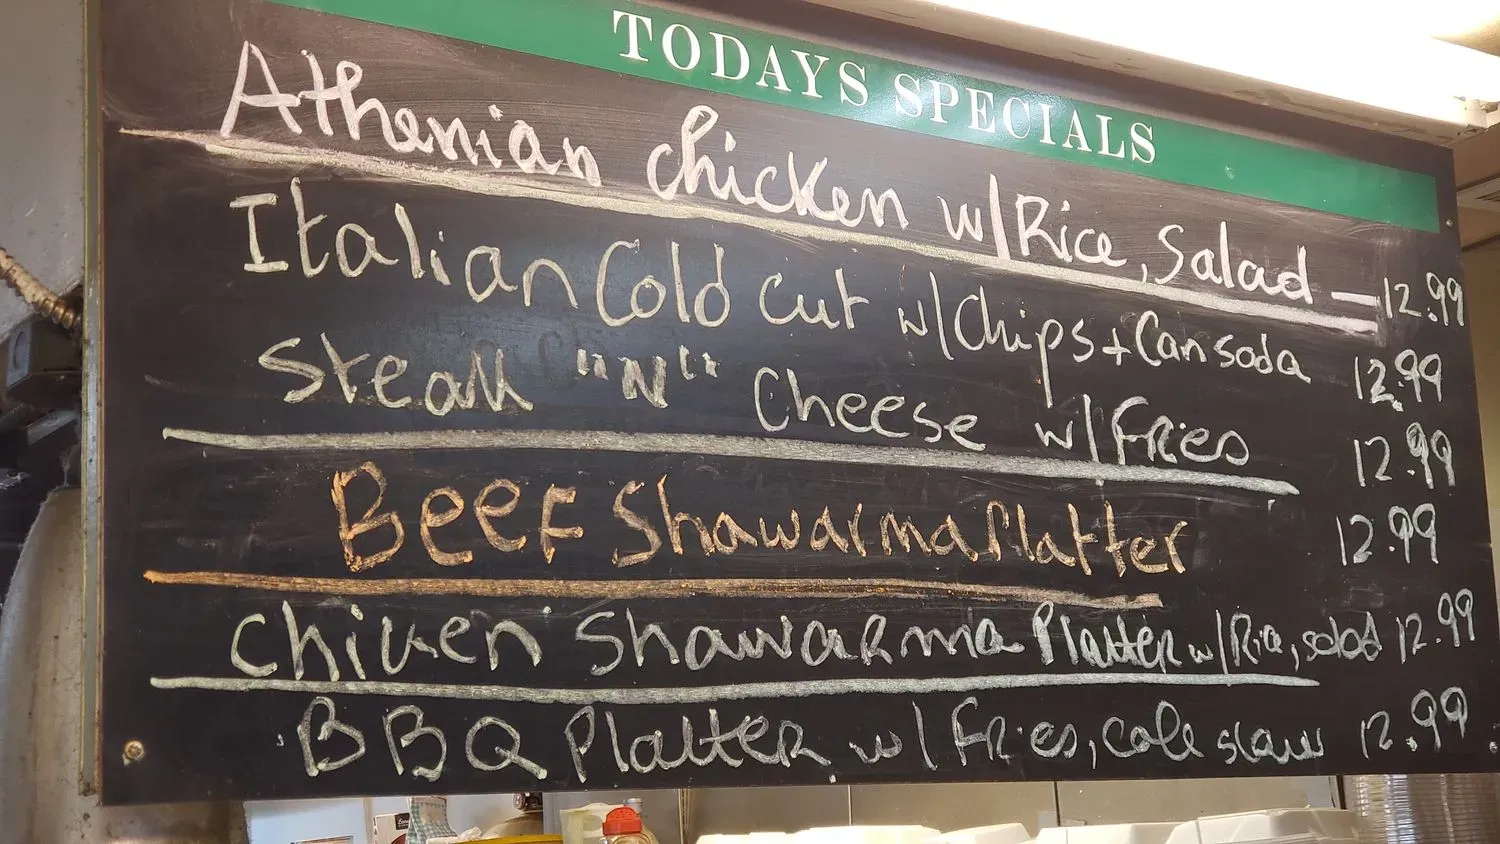 TODAYS SPECIALS
Athenian chicken w/Rice, Salad — 12.99
Italian Cold Cut w/Chips + Can soda 12.99
Steak "N" Cheese w/Fries 12.99
Beef Shawarma Platter 12.99
Chicken Shawarma Platter w/Rice, salad 12.99
BBQ Platter w/Fries, Cole slaw 12.99